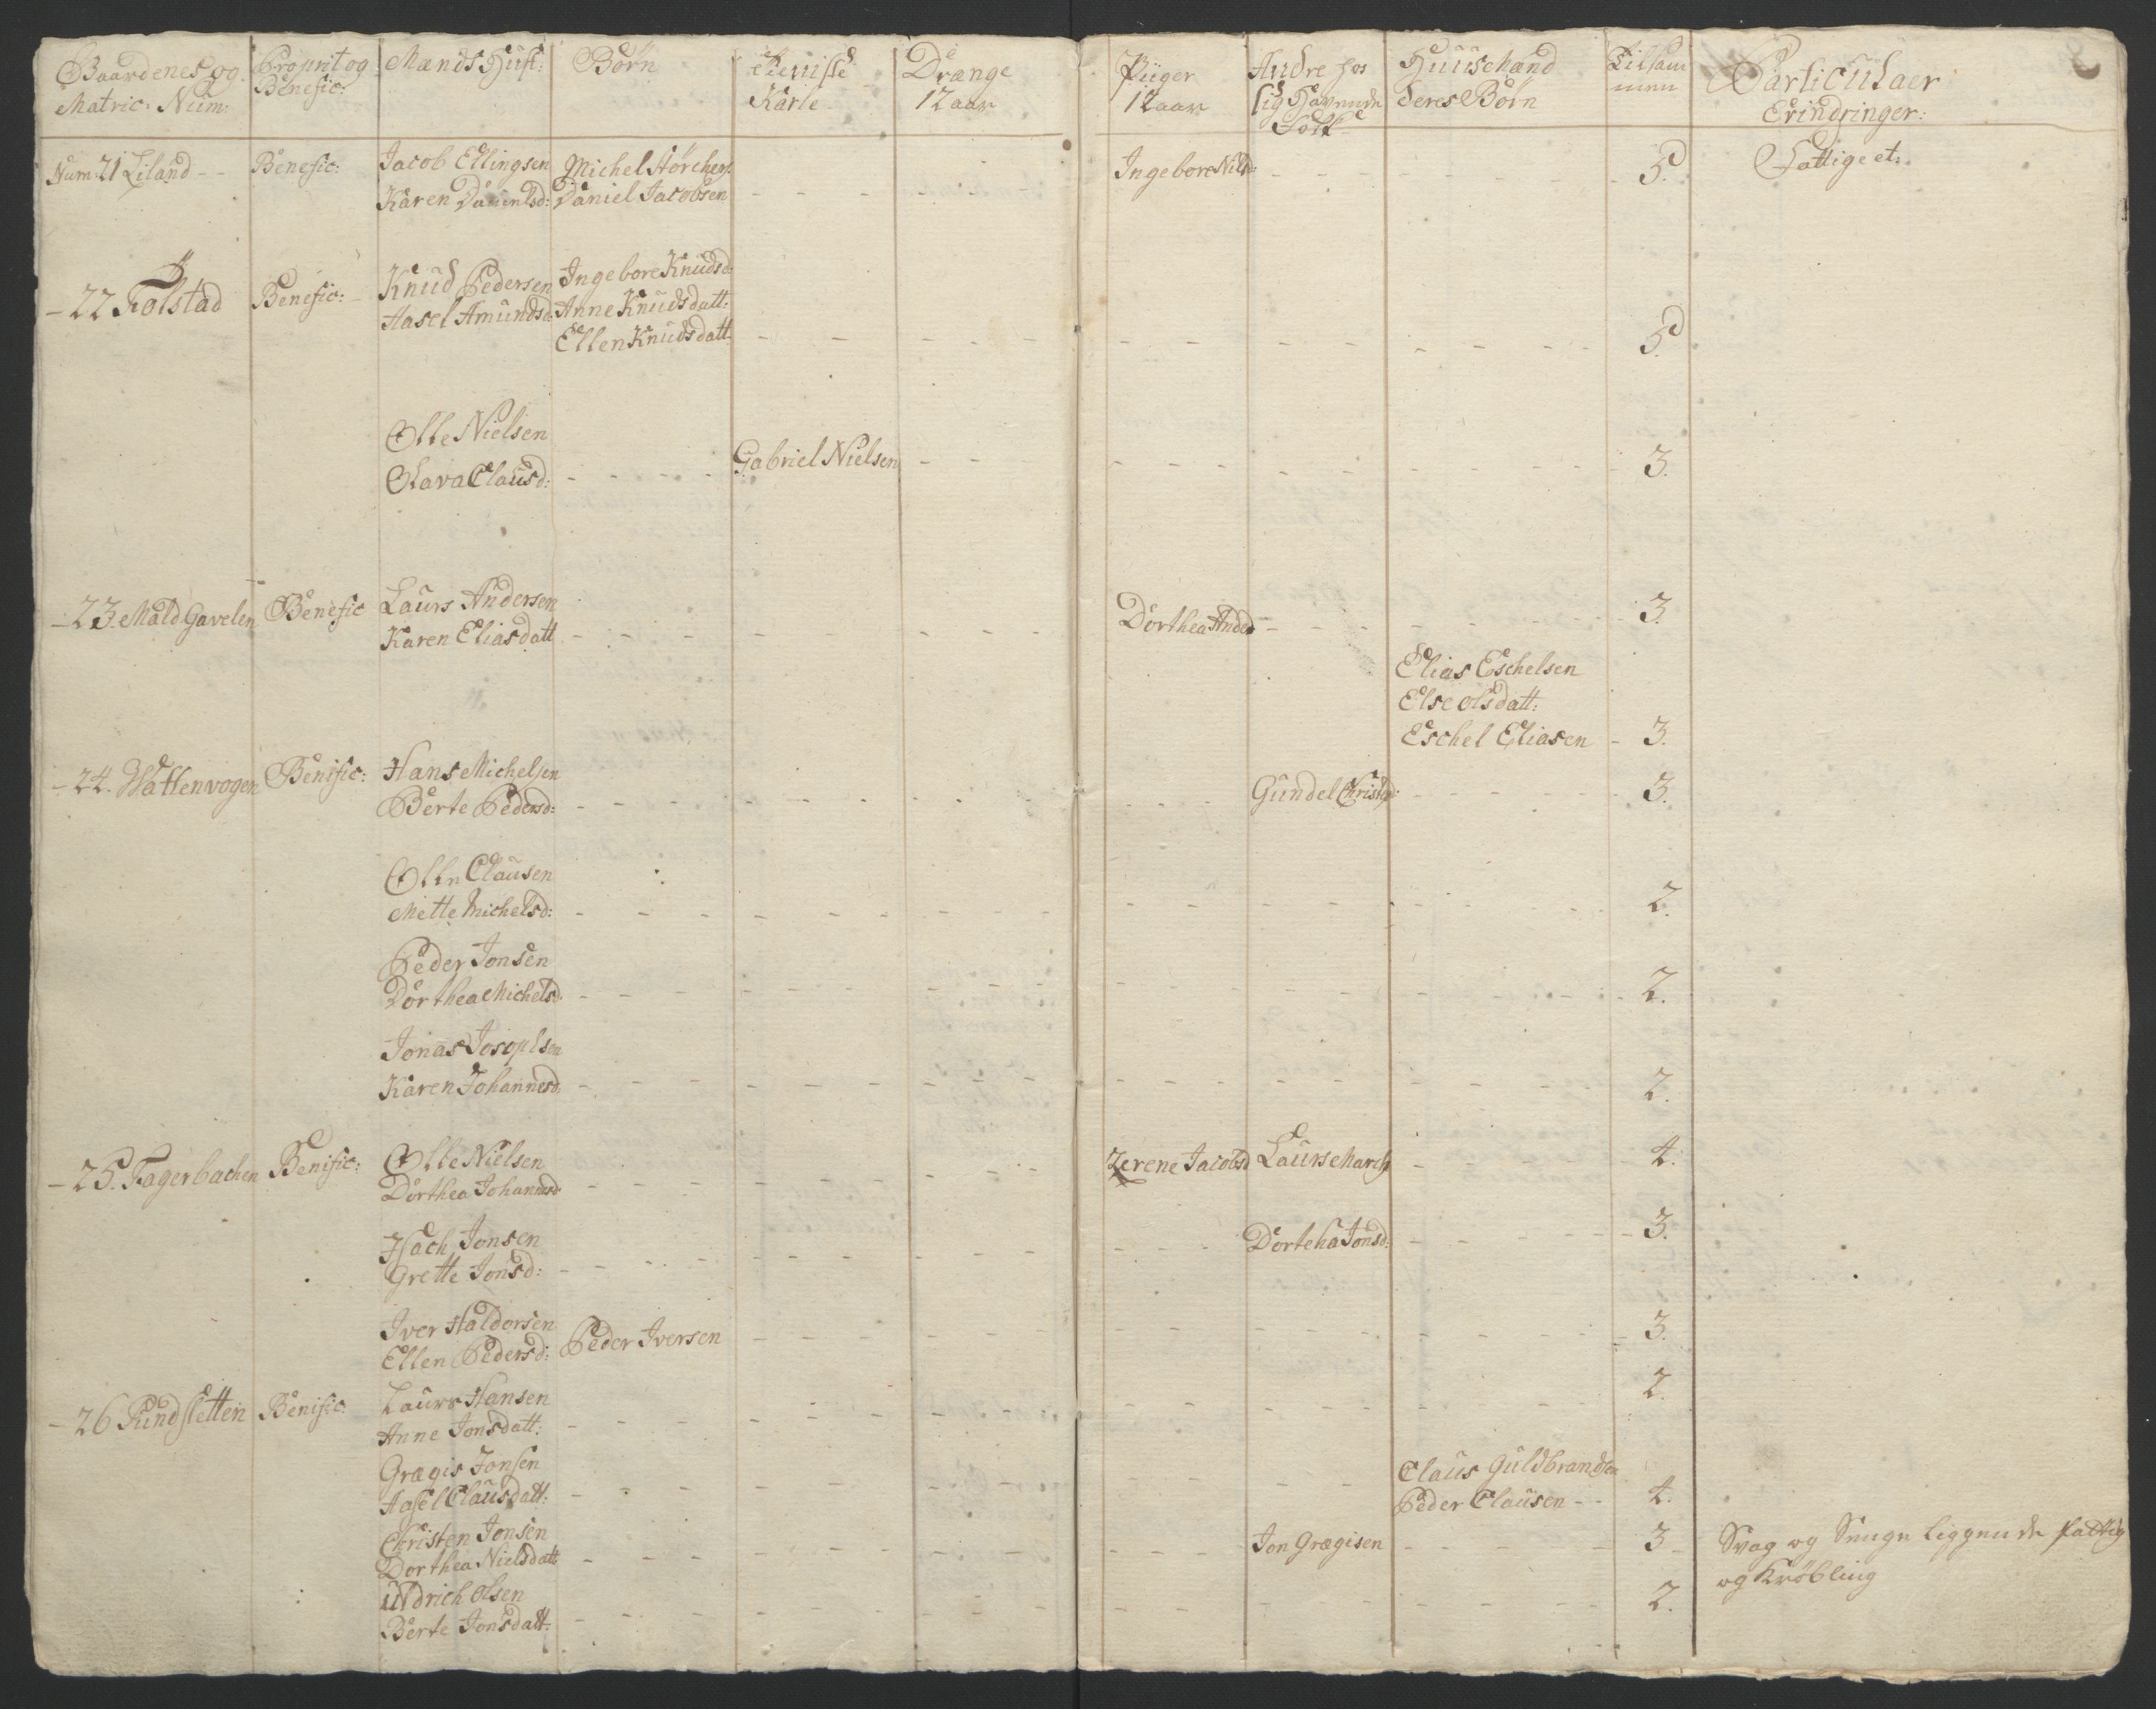 Gaardenes og Propriet og Mands Hust: Børn Tieniste Drænge Piiger Andre hos Huusmænd Tilsam Particulaer
Matric: Num: Benefic: Karle 12 aar 12 aar sig Havende deres Børn men Erindringer:
Folk
Num 21 Liland Benefic: Jacob Ellingsen Michel Størchers: Ingebore Nilsd: 5. Fattige et:
Karen Danielsd: Daniel Jacobsen
22 Tolstad Benefic: Knud Pedersen Ingebore Knudsd:
Aasel Amundsd: Anne Knudsdatt:
Ellen Knudsdatt: 5.
Olle Nielsen
Olava Clausd: Gabriel Nielsen 3.
23. Mald Gavelen Benefic Laurs Andersen Dorthea Andersd 3.
Karen Eliasdatt
Elias Eschelsen
Else Olsdatt:
Eschel Eliasen 3.
24. Wattenvogen Benific: Hans Michelsen
Berte Pedersd: Gundel Christ: 3.
Olle Clausen
Mette Michelsd: 2.
Peder Jonsen
Dorthea Michelsd. 2.
Jonas Josephsen
Karen Johannesd. 2.
25. Fagerbachen Benific: Olle Nielsen Zerene Jacobsd Laurs March 4.
Dorthea Johannesd:
Hach Jonsen Dorteha Jonsd: 3.
Grette Jonsd:
Iver Haldorsen
Ellen Pedersd: Peder Iversen 3.
26 Pundsletten Benific: Laurs Hansen 2.
Anne Jonsdatt:
Grægis Jonsen Claus Guldbrandsen
Aasel Clausdatt: Peder Clausen 4.
Christen Jonsen Jon Grægisen 3 Svag og Senge liggende fattig
Dorthea Nielsdatt og Krøbling
Uldrich Olsen 2.
Berte Jonsdatt: